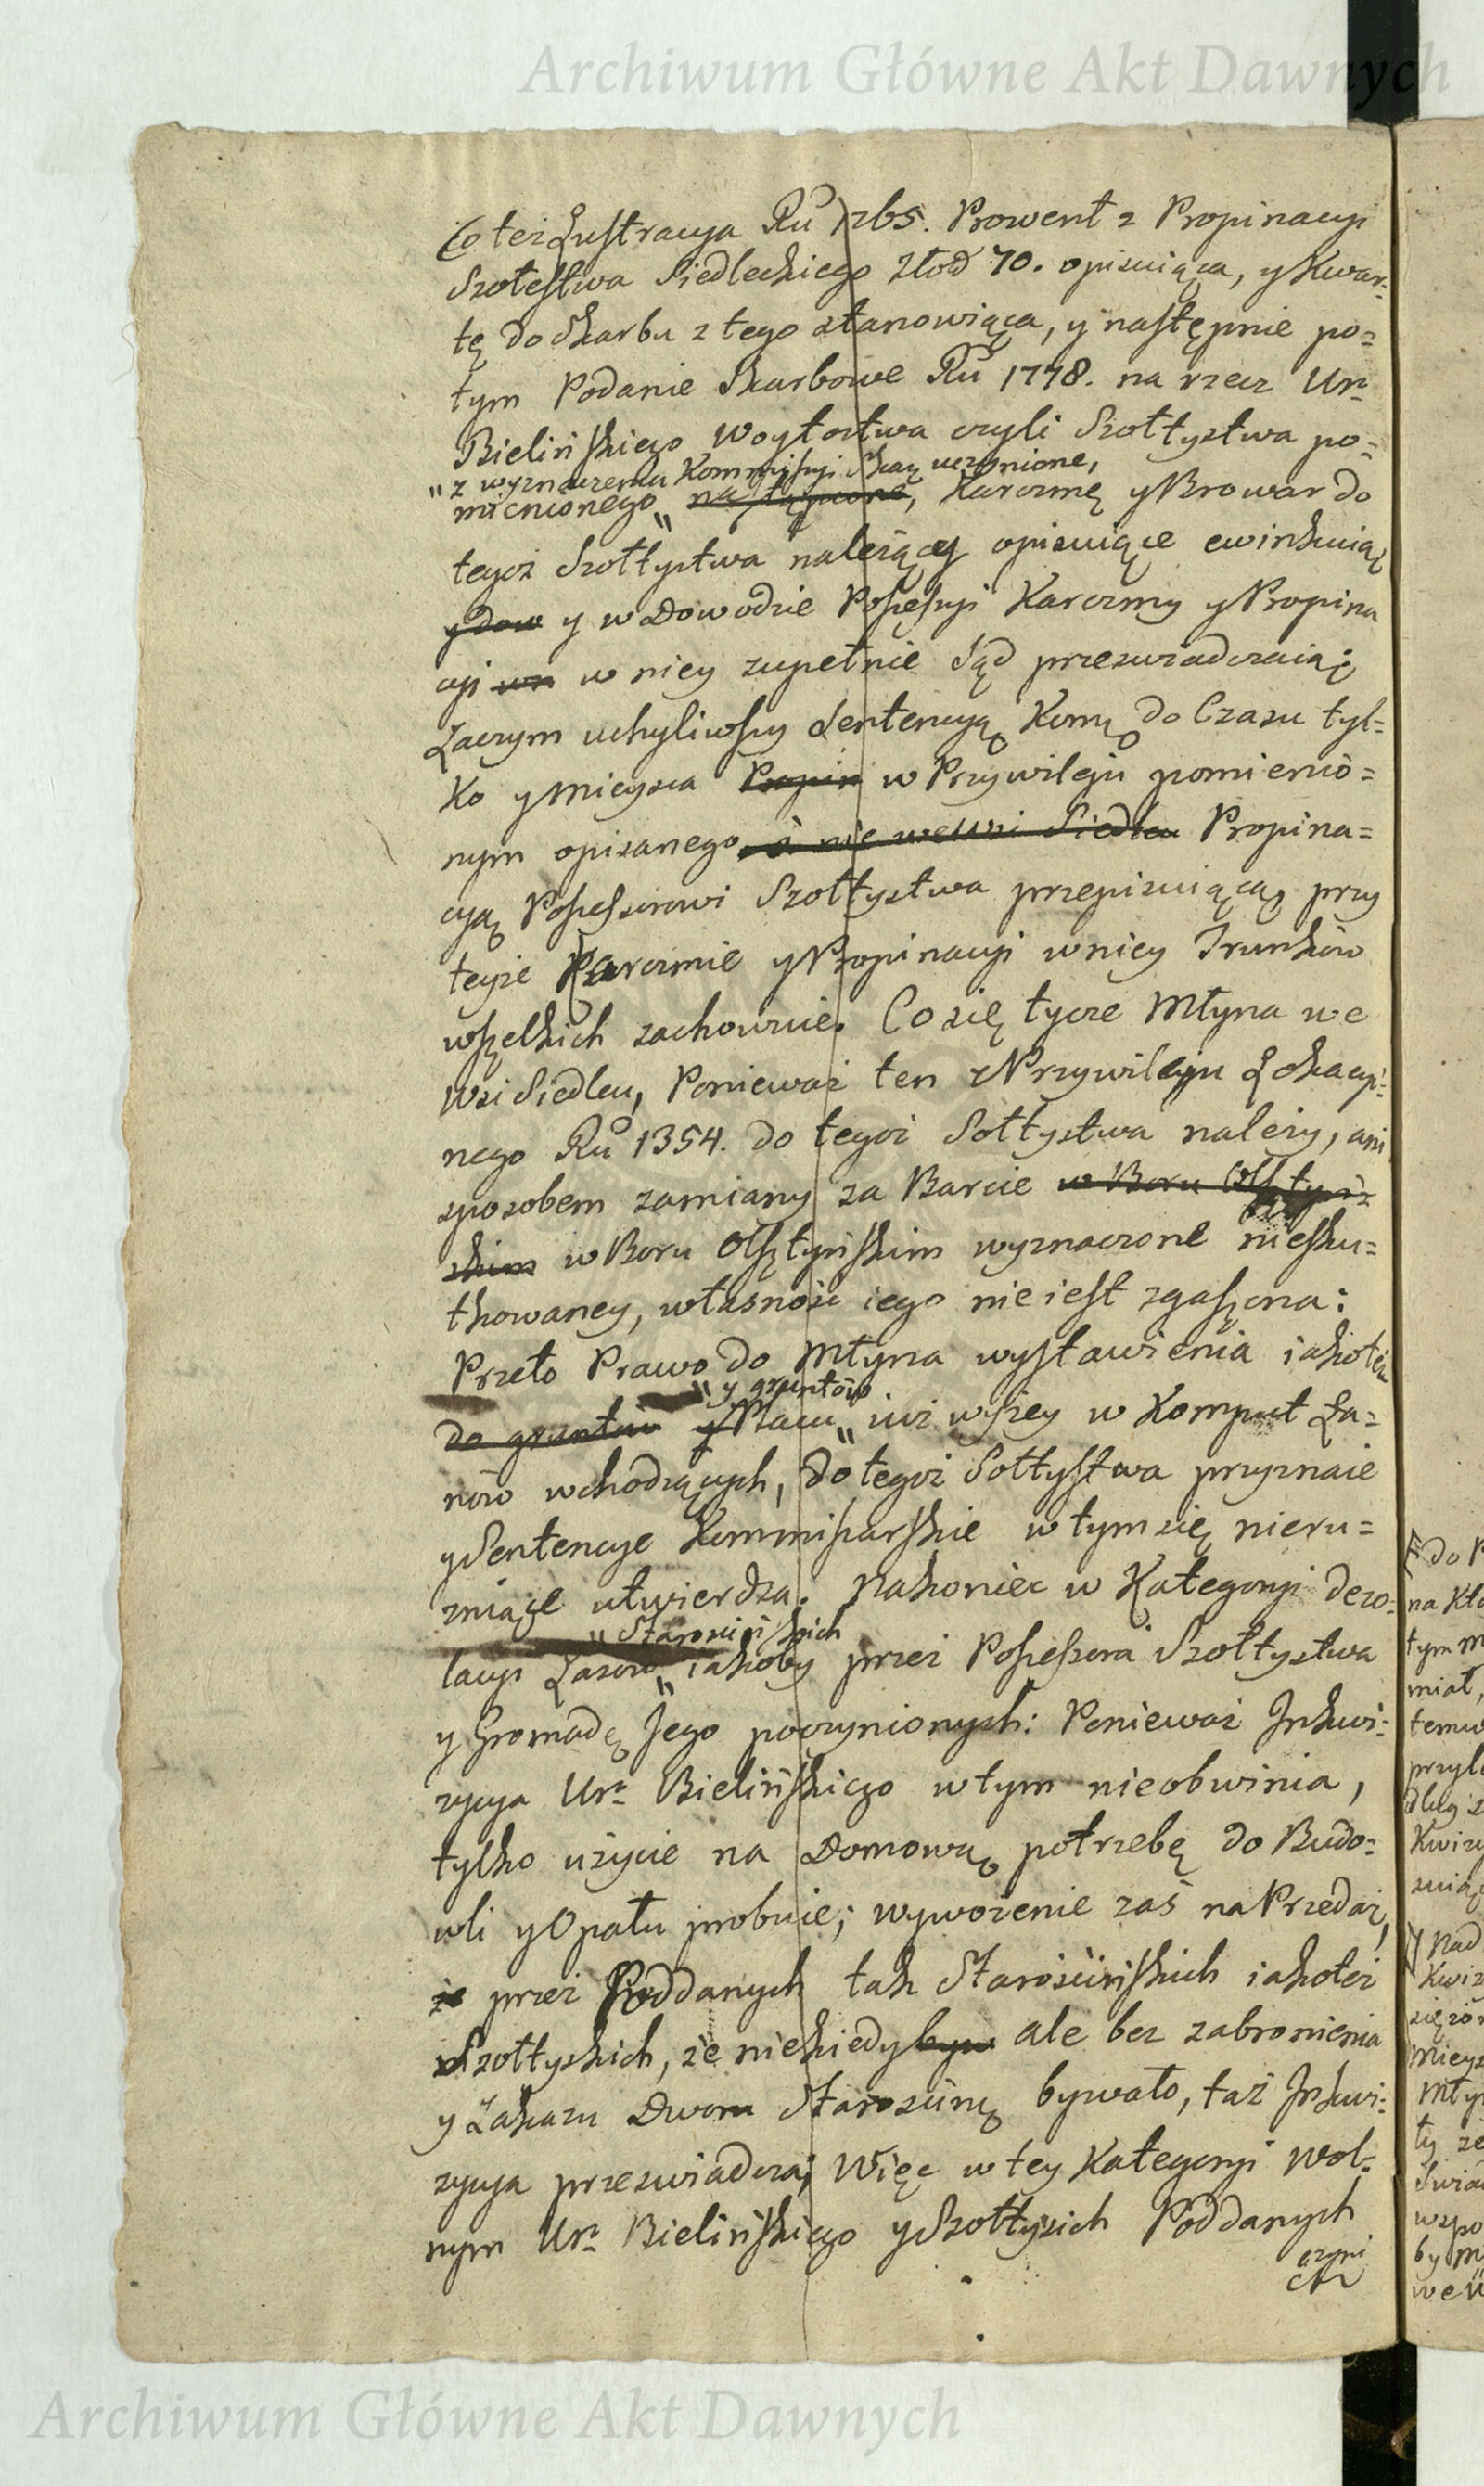 Archiwum Główne Akt Dawnych
Co też Lustracya Ru 1765. Prowent z Propinacyi
Szołestwa Siedleckiego Złod 70. opisuiąca, y Kwar=
tę do Skarbu z tego stanowiąca, y następnie po=
tym Podanie Skarbowe Ru 1778. na rzecz Ur:
Bielińskiego Woytostwa czyli Szołtystwa po=
"z wyznaczenia Kommissyi Skar: uczynione,
mienionego" nastąpione, Karczmę y Browar do
tegoż Szołtystwa należący opisuiące ewinkuią
y dow y w Dowodzie Possessyi Karczmy y Propina
cyi wn w niey zupełnie Sąd przeswiadczaią;
Zaczym uchyliwszy Sentencyą Komą do Czasu tyl=
ko y mieysca Propin w Przywileju pomienio=
nym opisanego a nie we wsi Siedlcu Propina=
cyą Possessorowi Szołtystwa przepisuiącą, przy
teyże Karczmie y Propinacyi w niey Trunków
wszelkich zachowuie. Co się tycze Młyna we
Wsi Siedlcu, Ponieważ ten z Przywileju Lokacyi=
nego Ru 1354. do tegoż Sołtystwa należy, ani
sposobem zamiany za Barcie w Boru Olsztyń=
skim w Boru Olsztyńskim wyznaczone niesku=
tkowaney, własność iego nie iest zgaszona:
Przeto Prawo do Młyna wystawienia iakoteż
"y gruntów
do gruntów y Placu" iuż wyżey w Komput Ła=
nów wchodzących, do tegoż Sołtystwa przyznaie
y Sentencye Kommissarskie w tym się nieru=
zniące utwierdza. Nakoniec w Kategoryi dezo=
"Starościńskich
lacyi Lasow" iakoby przez Possessora Szołtystwa
y Gromadę Jego poczynionych: Ponieważ Inkwi=
zycya Ur: Bielińskiego w tym nieobwinia,
tylko użycie na Domową potrzebę do Budo=
wli y Opału probuie; wywożenie zaś na Przedaż,
że przez Poddanych tak Starościńskich iakoteż
Szołtyskich, że niekiedy byw ale bez zabronienia
y Zakazu Dworu Starościnę bywało, taż Inkwi=
zycya przeswiadcza; Więc w tey Kategoryi wol=
nym Ur: Bielińskiego y Szołtysich Poddanych
czyni
do P
na Kło
tym m
miał,
temu
przyle
dług s
Kwizy
suiąc
Nad
Kwiz
się zo
mieys
Młyn
ty ze
Świad
wspo
by m
we u
Archiwum Główne Akt Dawnych